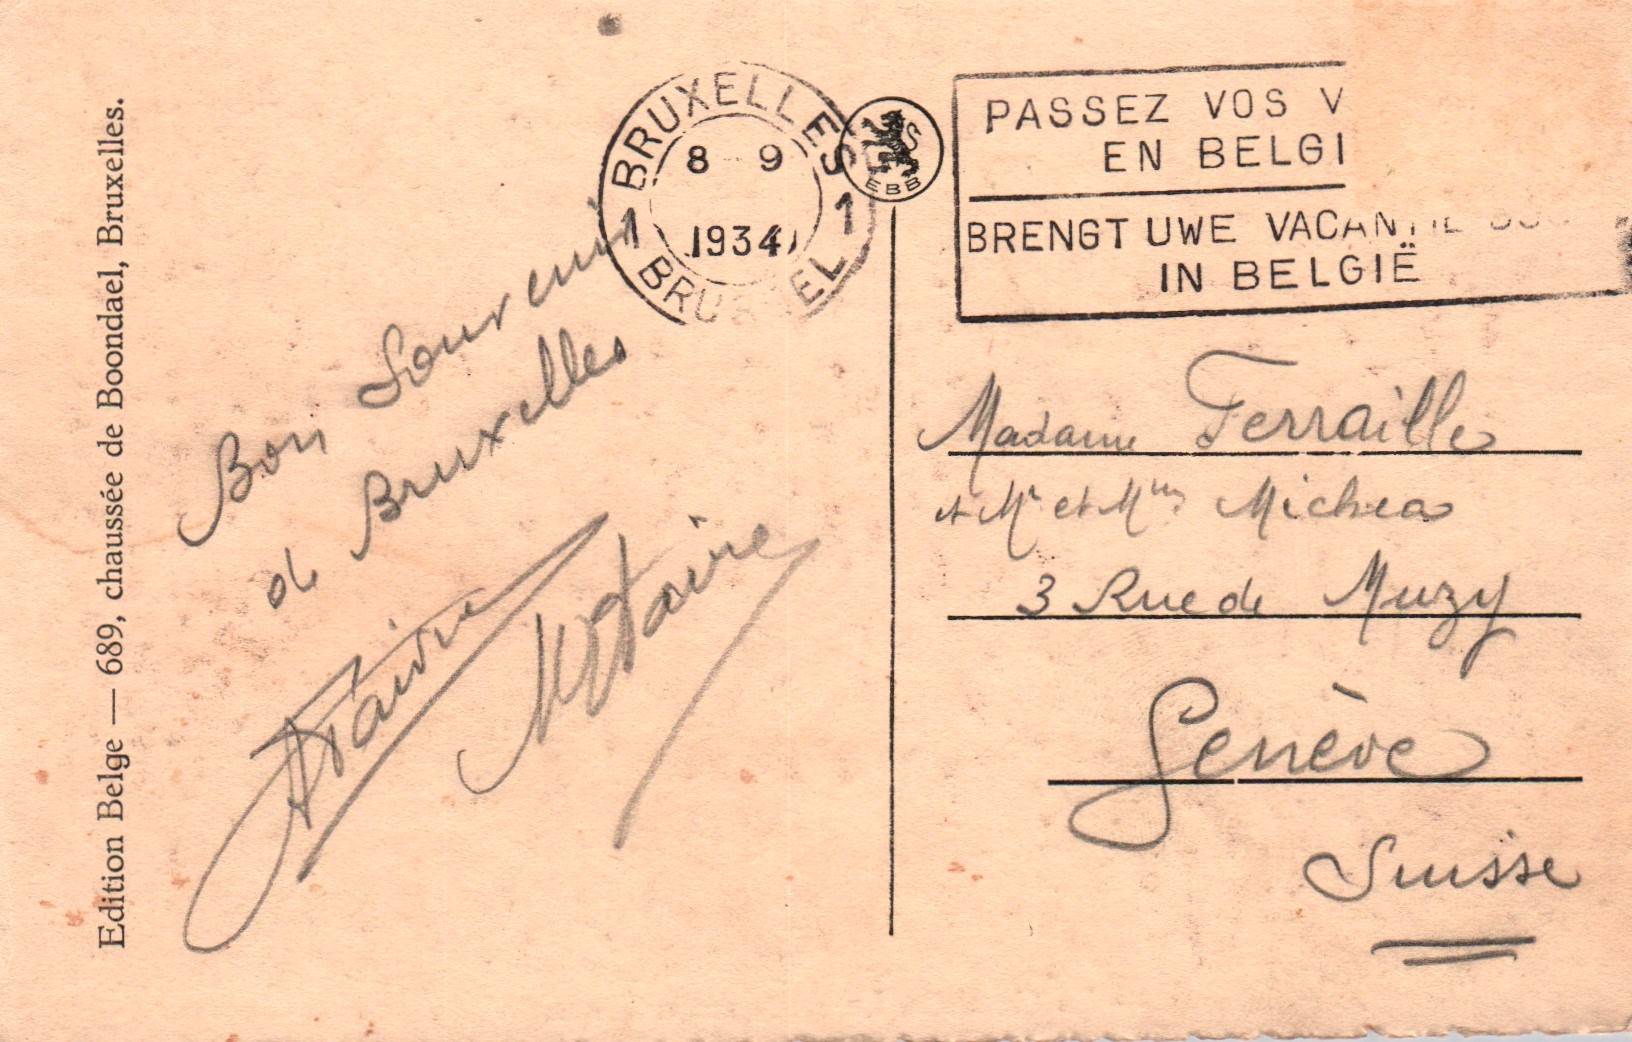 Edition Belge — 689, chaussée de Boondael, Bruxelles.
BRUXELLES
1 1
8 9
1934
EBB
PASSEZ VOS V
EN BELGI
BRENGT UWE
IN BELGIË
Bon Souvenir
de Bruxelles
Madame Ferraille
et Mr et Mme Michea
3 Rue de Muzy
Genève
Suisse